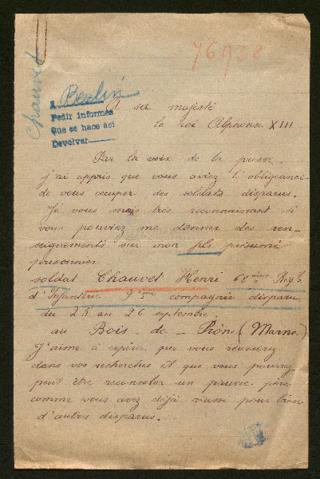 76938
Chauvet
A Berlin
Pedir informes
Que se hace asi
Devolver
A sa majesté
le roi Alphonse XIII
Par la voix de la presse,
j'ai appris que vous aviez l'obligeance
de vous occuper des soldats disparus.
Je vous serais très reconnaissant si
vous pouviez me donner des ren-
seignements sur mon fils présumé
prisonnier
soldat Chauvet Henri 68ème Regt
d'Infanterie 9ème compagnie disparu
du 25 au 26 septembre
au Bois de (Marne)
J'aime à espérer que vous réussirez
dans vos recherches et que vous pourrez
peut être réconsoler un pauvre père
comme vous avez déjà réussi pour bien
d'autres disparus.